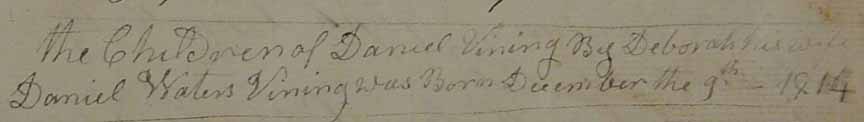 the Children of Daniel Vining By Deborah his wife
Daniel Waters Vining was Born December the 9th - 1814